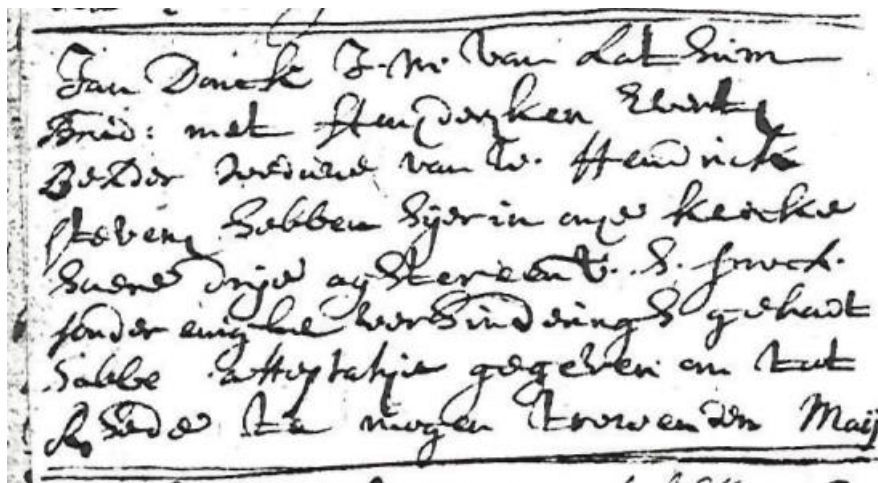 Jan Donck J. M. van Lathum
met Hendersken Everts
Weduwe van W. Hendrick
Stevens hebben hijer in onse kercke
haere drije agtereen v. h.
sonder enighe verhinderingh gehadt
hebbe attestatije gegeven om tot
te mogen trouwen den Maij